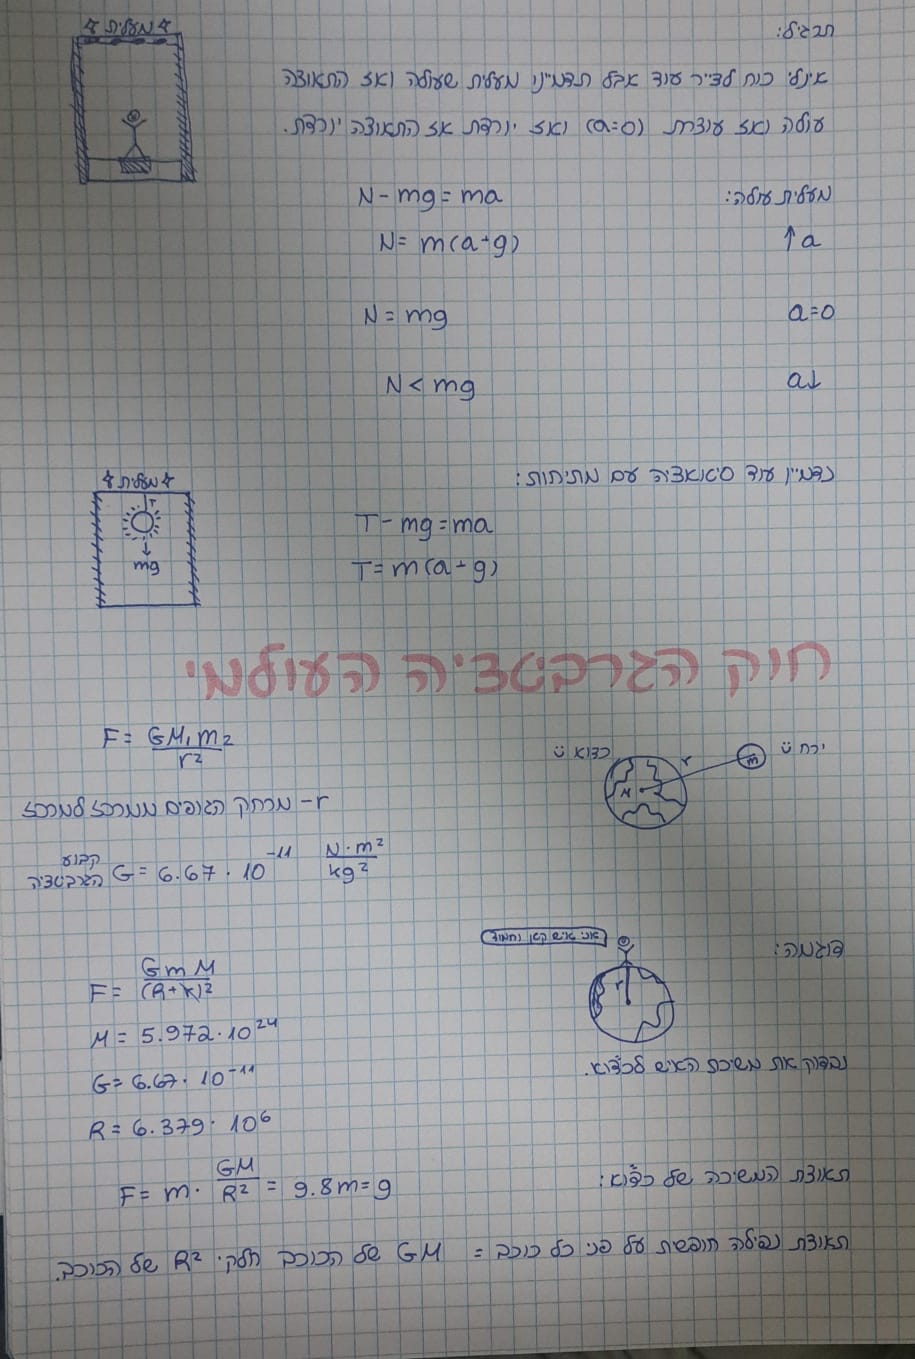 תרגיל:
מעלית
אין לי כוח לצייר עוד אבל תדמיינו מעלית שעולה ואז התאוצה
עולה ואז עוצרת (a=0) ואז יורדת אז התאוצה יורדת.
מעלית עולה:
N - mg = ma
↑a
N = m(a+g)
a=0
N = mg
a↓
N < mg
נדמיין עוד סיטואציה עם מתיחות:
מעלית
T
mg
T - mg = ma
T = m(a+g)
חוק הגרביטציה העולמי
F = GM₁m₂/r²
כדוא
ירח
M
r
m
r - מרחק הגופים ממרכז למרכז
קבוע הגרביטציה G = 6.67 · 10⁻¹¹ N·m²/kg²
דוגמה:
אני איש קטן וחמוד
r
F = GmM/(R+x)²
M = 5.972 · 10²⁴
נבדוק את משיכת האיש לכדוא.
G = 6.67 · 10⁻¹¹
R = 6.379 · 10⁶
תאוצת המשיכה של כדוא:
F = m · GM/R² = 9.8m = g
תאוצת נפילה חופשית על פני כל כוכב = GM של הכוכב חלקי R² של הכוכב.